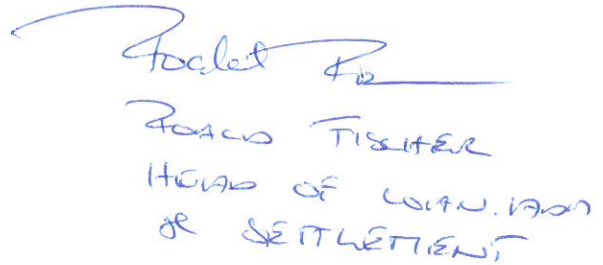 ROALD FISCHER
HEAD OF LOAN. ADM
& SETTLEMENT